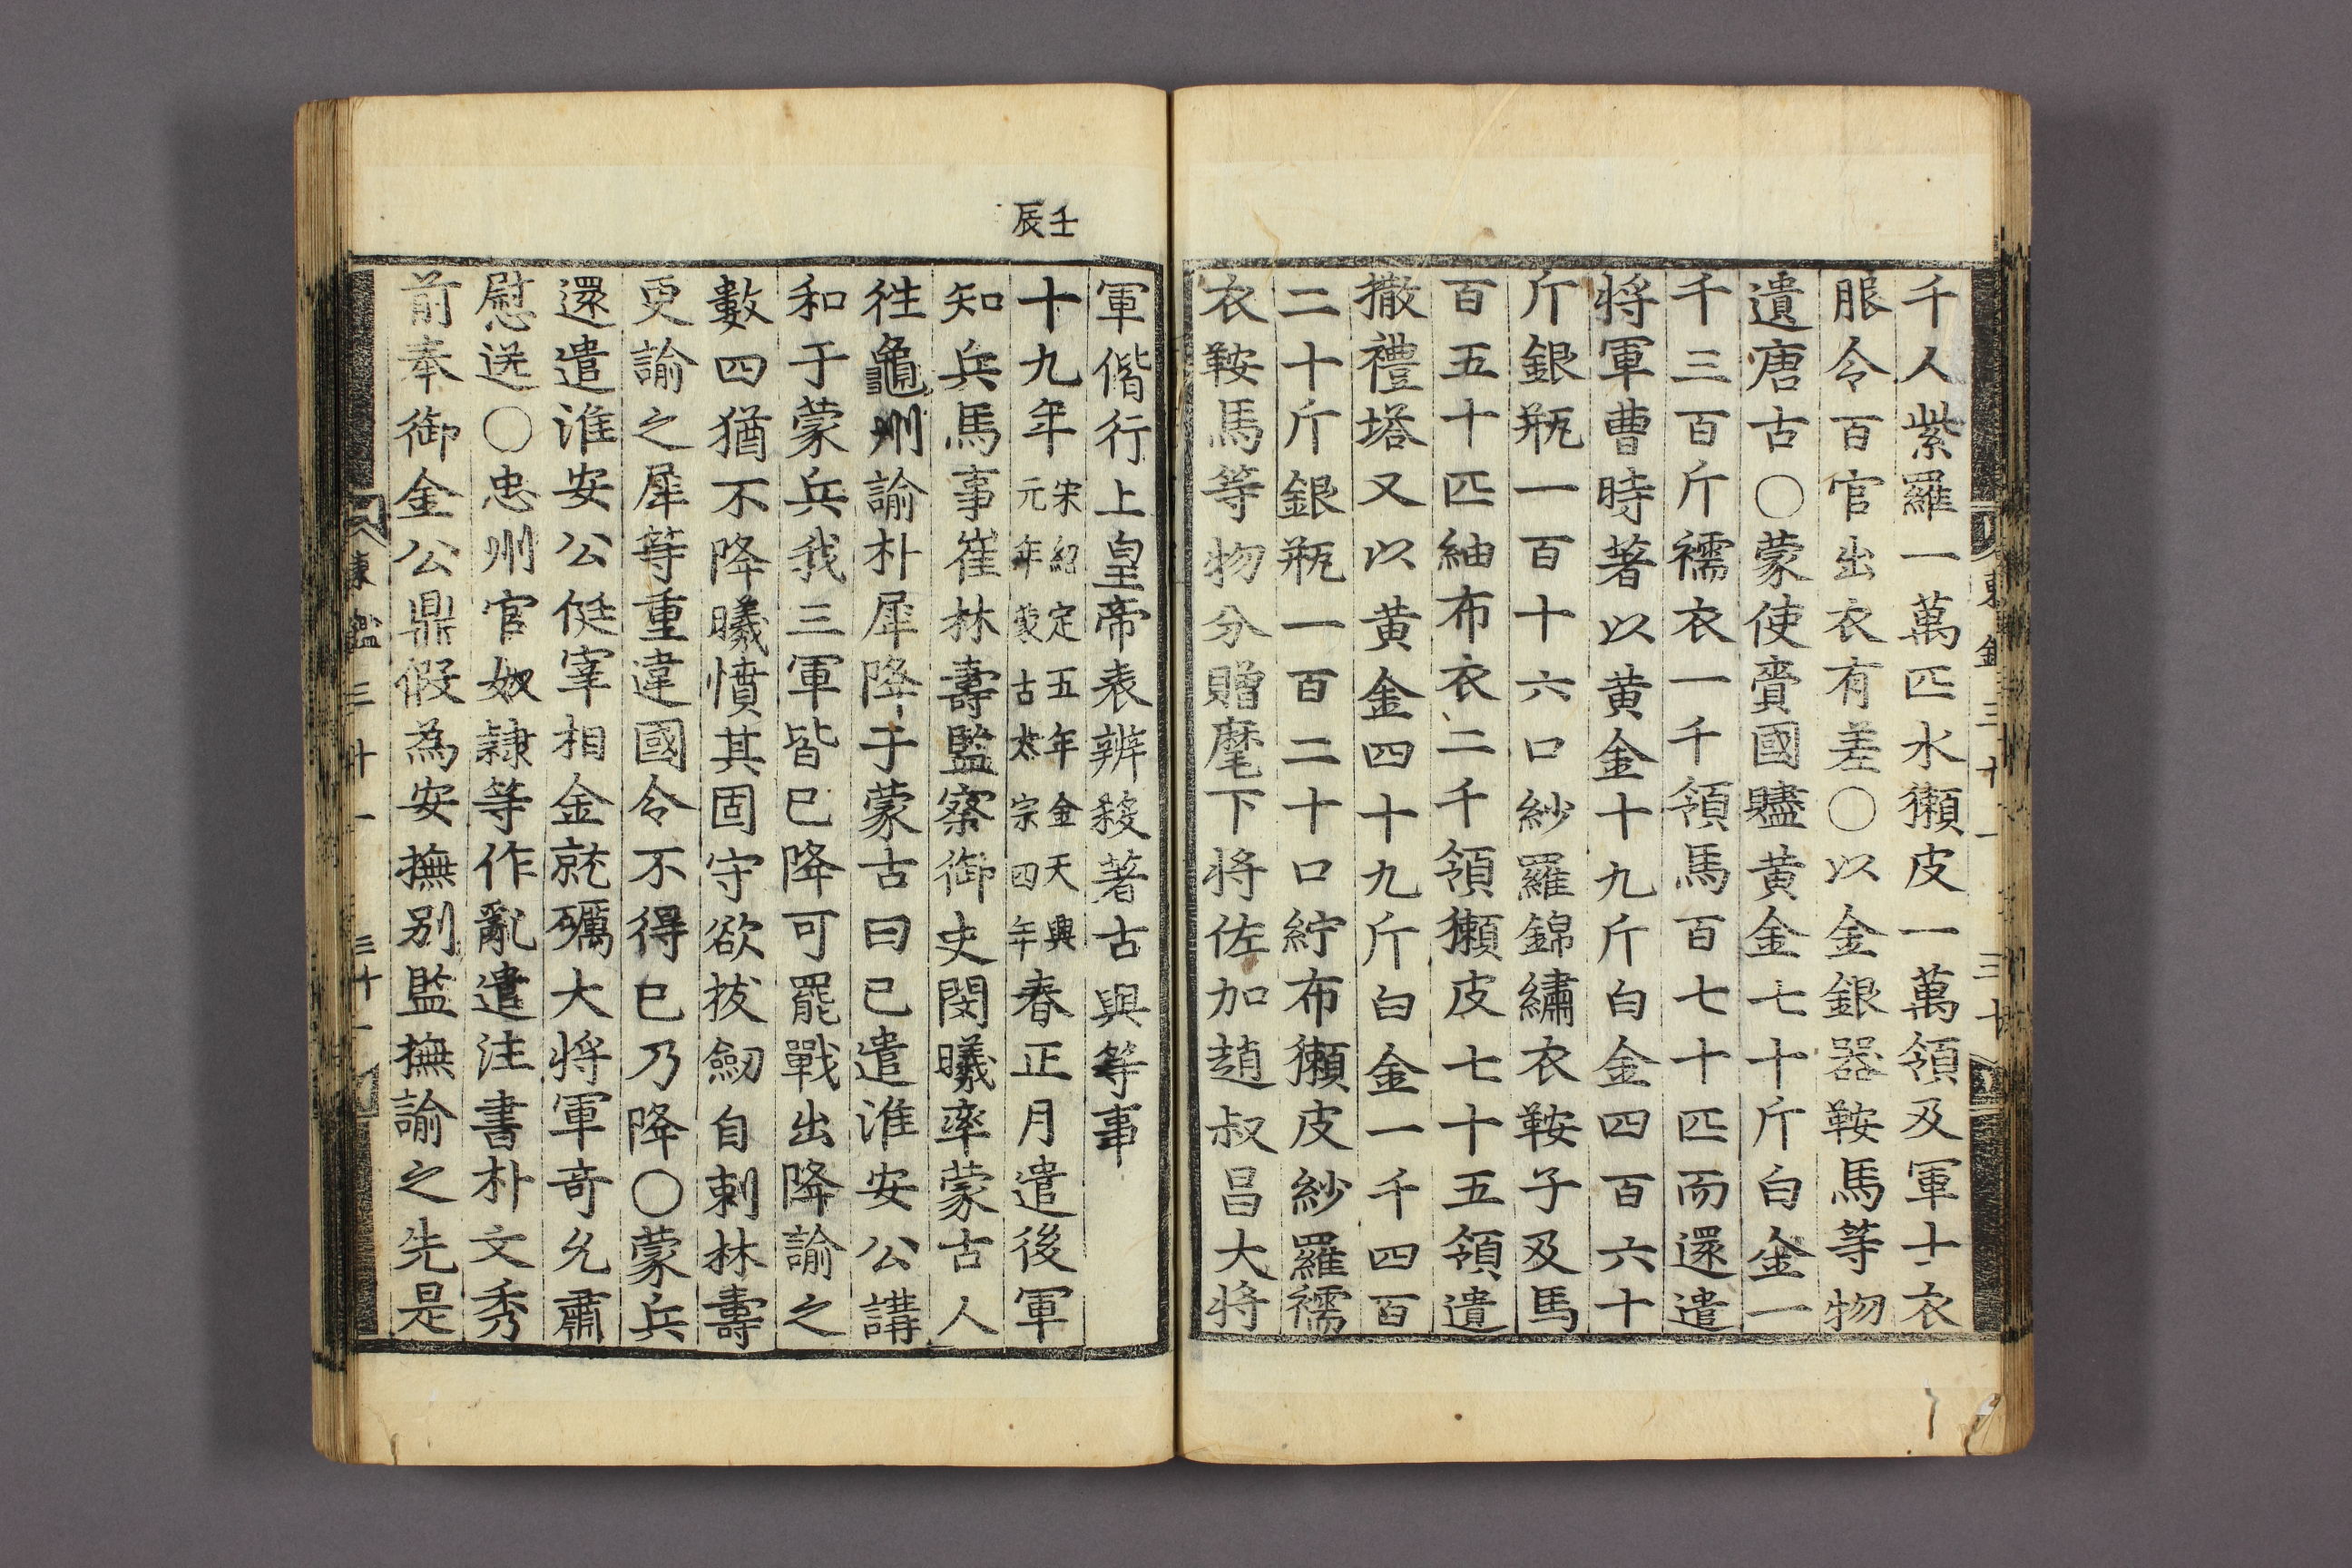 千人紫羅一萬匹水獺皮一萬領及軍士衣
服令百官出衣有差〇以金銀器鞍馬等物
遺唐古〇蒙使賫國贐黄金七十斤白金一
千三百斤襦衣一千領馬百七十匹而還遣
将軍曹時著以黄金十九斤白金四百六十
斤銀瓶一百十六口紗羅錦繡衣鞍子及馬
百五十匹紬布衣二千領獺皮七十五領遺
撒禮塔又以黄金四十九斤白金一千四百
二十斤銀瓶一百二十口紵布獺皮紗羅襦
衣鞍馬等物分贈麾下将佐加趙叔昌大将
壬辰
軍偕行上皇帝表辨殺著古與等事
十九年宋紹定五年金天興元年蒙古太宗四年春正月遣後軍
知兵馬事崔林壽監察御史閔曦率蒙古人
徃龜州諭朴犀降于蒙古曰已遣淮安公講
和于蒙兵我三軍皆已降可罷戰出降諭之
數四猶不降曦憤其固守欲拔劒自刺林壽
更諭之犀等重違國令不得已乃降〇蒙兵
還遣淮安公侹宰相金就礪大将軍奇允肅
慰送〇忠州官奴隷等作亂遣注書朴文秀
前奉御金公鼎假為安撫别監撫諭之先是
東鑑三十一 三十一